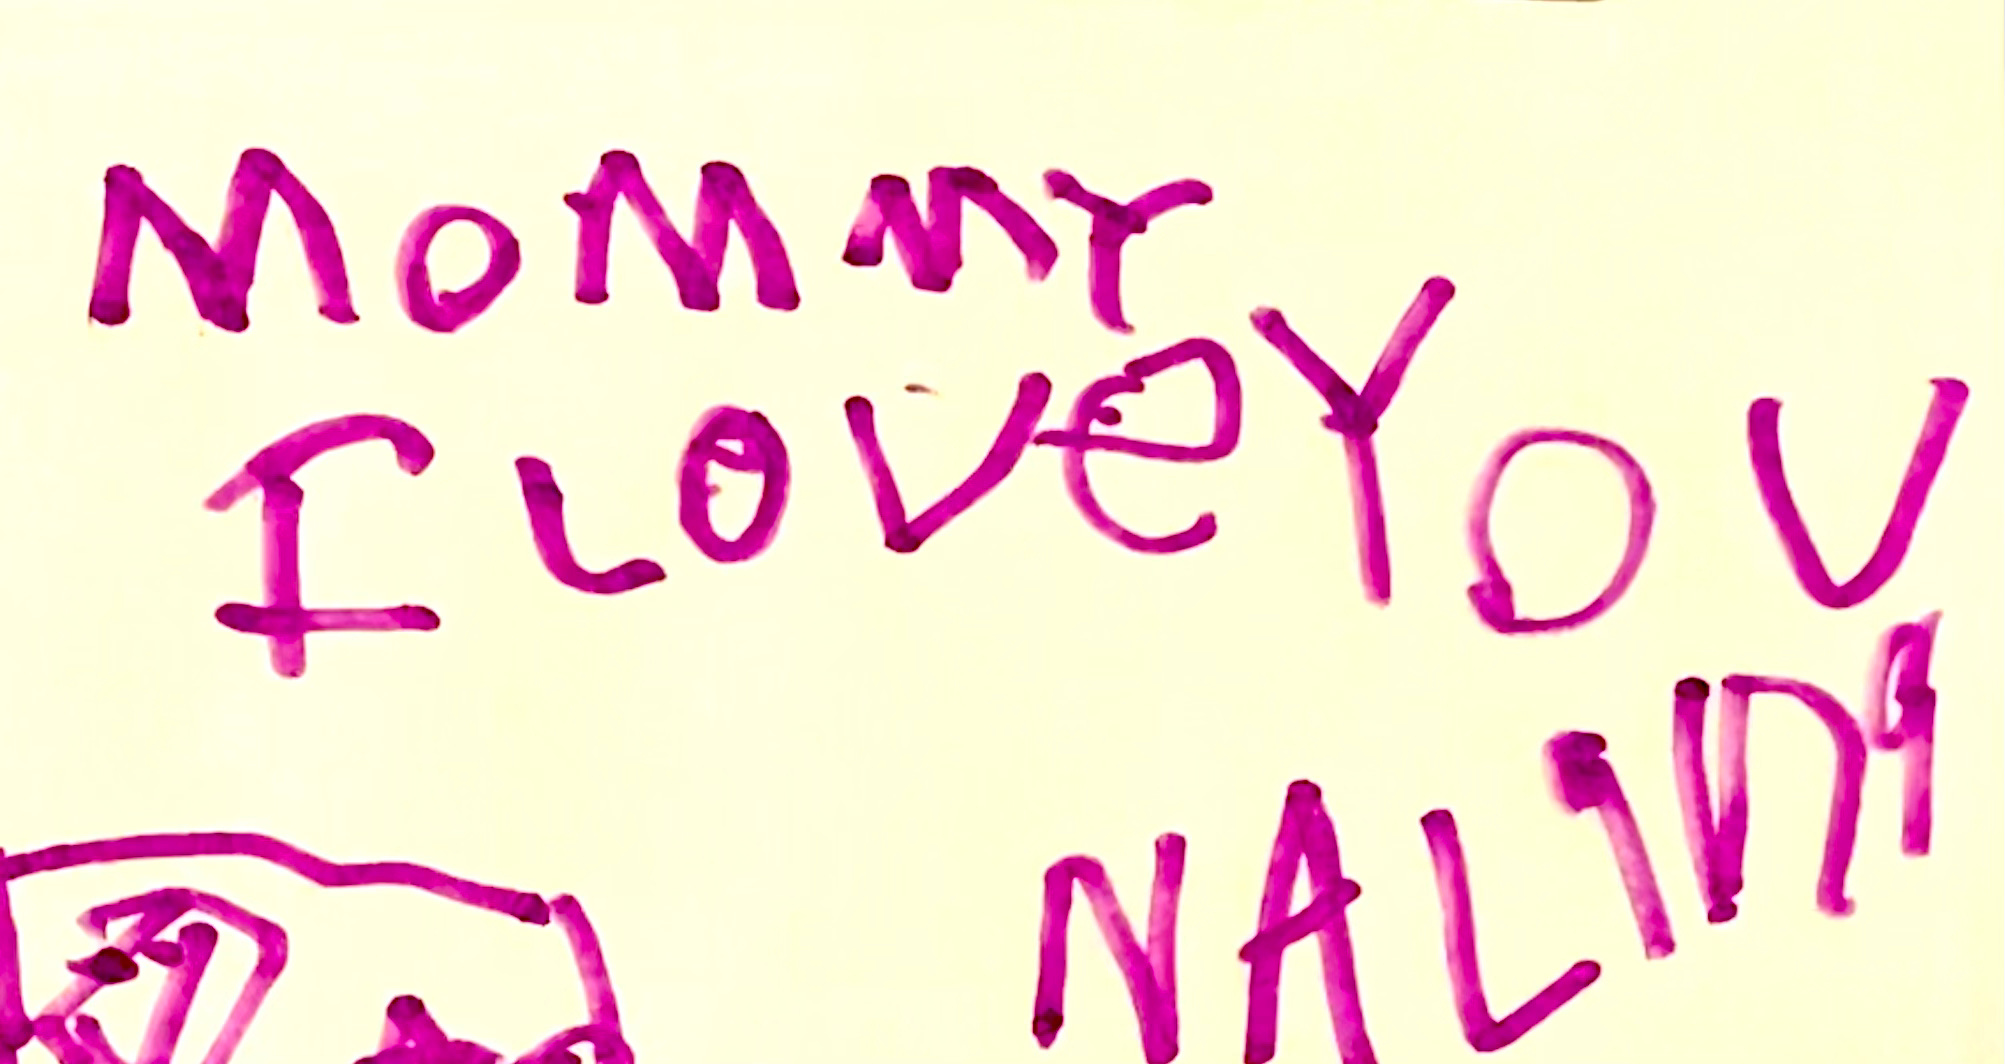 MOMMY
I LOVe YOU
NALINA